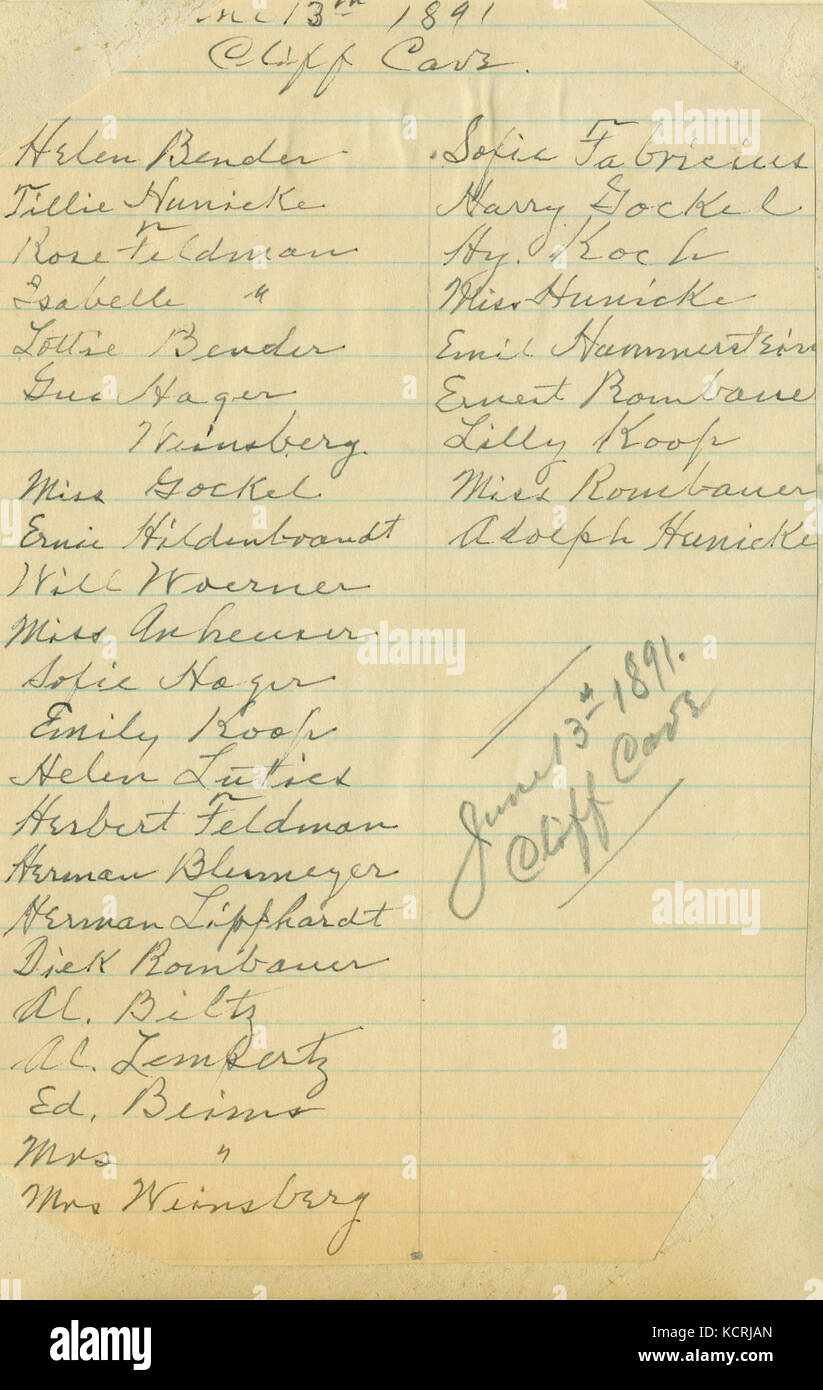 13th 1891
Cliff Cave.
Helen Bender
Tillie Hunicke
Rose Feldman
Isabelle "
Lottie Bender
Gus Hager
Weinsberg
Miss Gockel
Ernie Hildenbrandt
Will Woerner
Miss Anheuser
Sofie Hager
Emily Koop
Helen Luties
Herbert Feldman
Herman Blumeyer
Herman Lipphardt
Dick Rombauer
Al. Biltz
Al. Lempertz
Ed. Beims
Mrs "
Mrs Weinsberg
Sofie Fabricius
Harry Gockel
Hy. Koch
Miss Hunicke
Emil Hammerstein
Ernest Rombaue
Lilly Koop
Miss Rombauer
Adolph Hunicke
June 13th 1891.
Cliff Cave
alamy
alamy
alamy
a
a
a
alamy
Image ID: KCRJAN
www.alamy.com